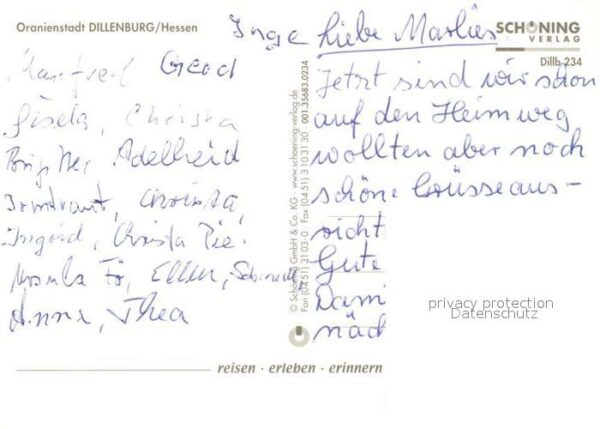 Oranienstadt DILLENBURG/Hessen
SCHÖNING
VERLAG
Dillb 234
Inge
Manfred Gerd
Gisela, Christa
Brigitte, Adelheid
Irmtraut, Christa,
Ingrid, Christa Pie.
Ursula Fö, Ellen,
Anna, Thea
Liebe Marlies
Jetzt sind wir schon
auf den Heimweg
wollten aber noch
schöne Grüsse aus-
richt
Gute
Dami
näch
© Schöning GmbH & Co. KG · www.schoening-verlag.de
Fon (04 51) 3 103-0 · Fax (04 51) 3 10 31 30 001.35683.0234
privacy protection
Datenschutz
reisen · erleben · erinnern